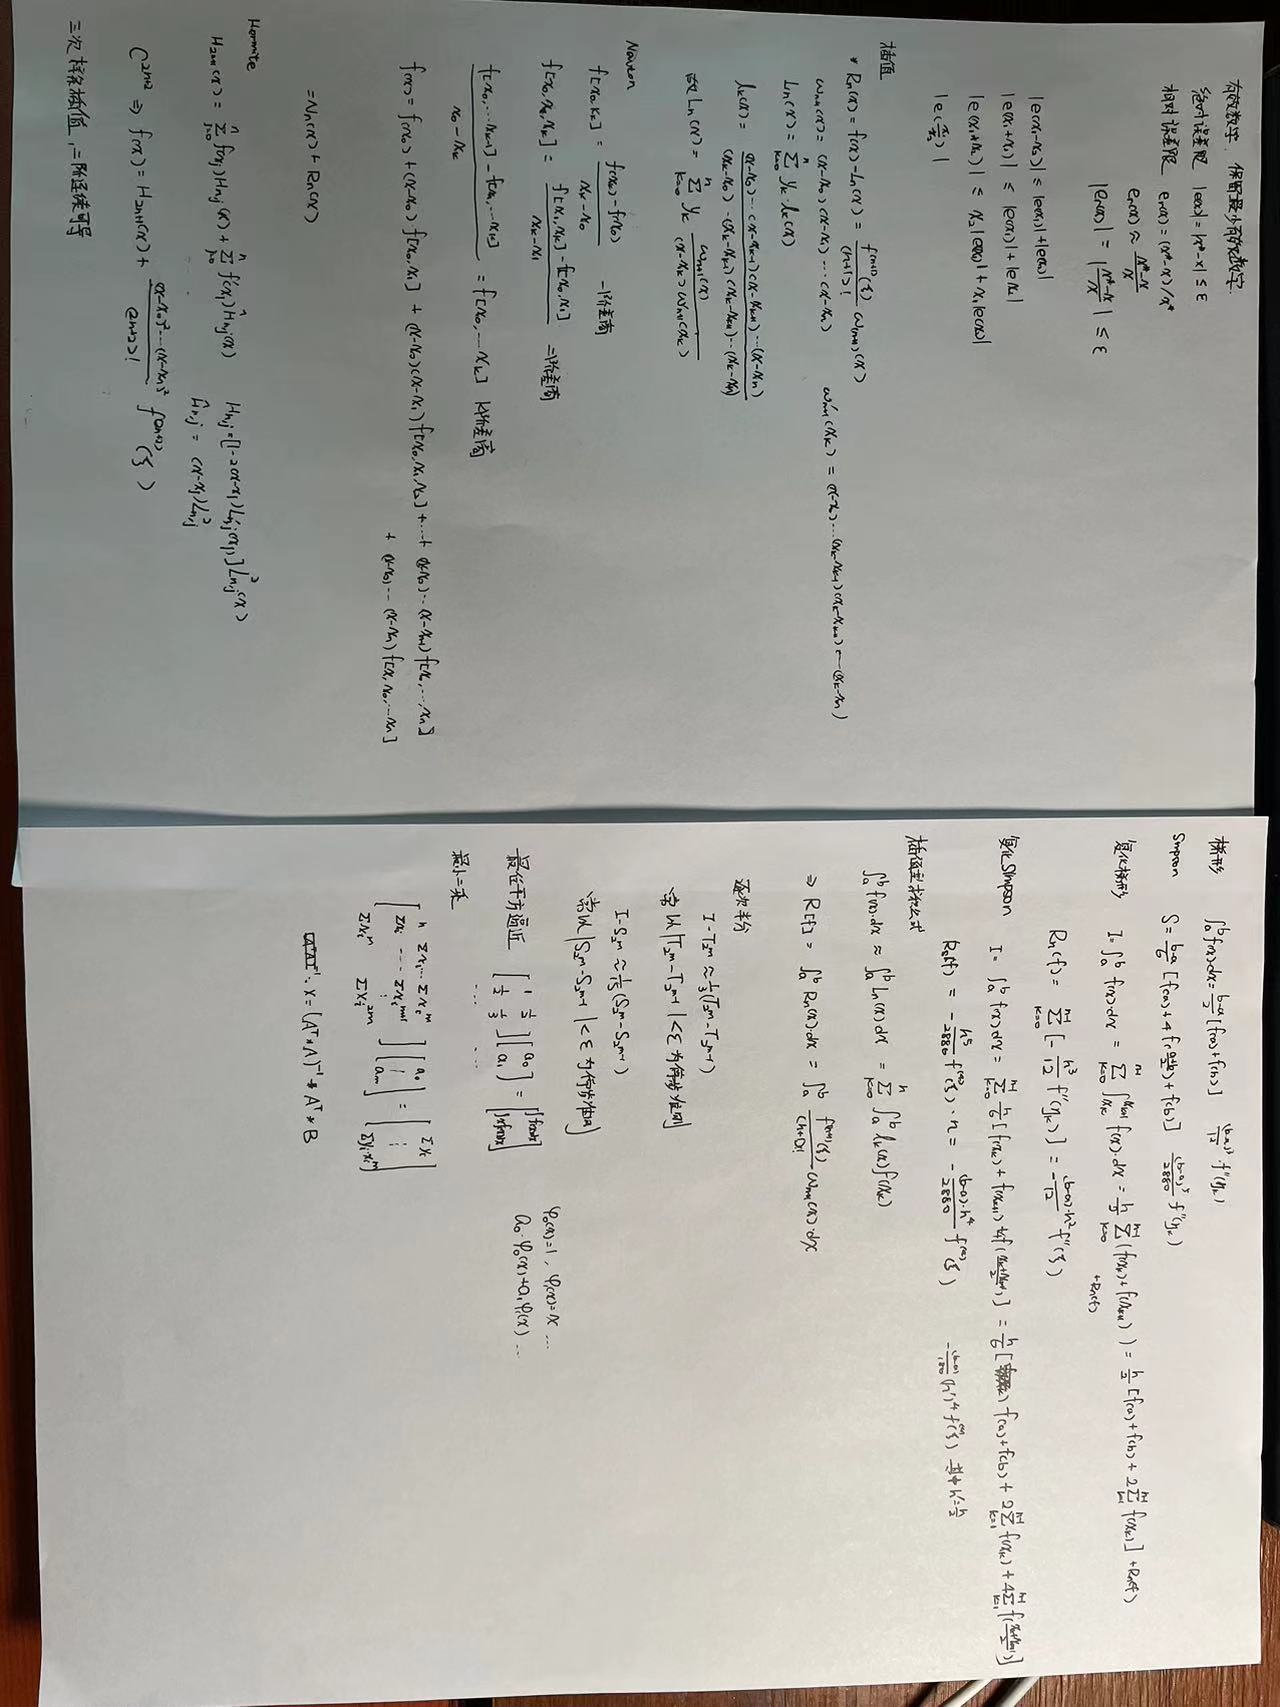 有效数字. 保留最少有效数字.
绝对误差限 |e(x)| = |x*-x| ≤ ε
相对误差限 er(x) = (x*-x)/x*
er(x) ≈ (x*-x)/x
|er(x)| = |(x*-x)/x| ≤ ε
|e(x₁-x₂)| ≤ |e(x₁)|+|e(x₂)|
|e(x₁+x₂)| ≤ |e(x₁)|+|e x₂|
|e(x₁x₂)| ≤ x₂|e(x₁)|+x₁|e(x₂)|
|e(x₁/x₂)|
插值
* Rn(x) = f(x)-Ln(x) = f⁽ⁿ⁺¹⁾(ξ)/(n+1)! ω(n+1)(x)
ωn+1(x) = (x-x₀)(x-x₁)⋯(x-xn) ω'n+1(xk) = (x-x₀)⋯(xk-xk-1)(xk-xk+1)⋯(xk-xn)
Ln(x) = Σₖ₌₀ⁿ yk lk(x)
lk(x) = (x-x₀)⋯(x-xk-1)(x-xk+1)⋯(x-xn) / (xk-x₀)⋯(xk-xk-1)(xk-xk+1)⋯(xk-xn)
故 Ln(x) = Σₖ₌₀ⁿ yk ωn+1(x) / (x-xk)ω'n+1(xk)
Newton
f[x₀,xk] = (f(xk)-f(x₀))/(xk-x₀) 一阶差商
f[x₀,x₁,xk] = (f[x₁,xk]-f[x₀,x₁])/(xk-x₁) 二阶差商
(f[x₀,…xk-1]-f[x₁,…xk])/(x₀-xk) = f[x₀,…xk] k阶差商
f(x) = f(x₀)+(x-x₀)f[x₀,x₁]+(x-x₀)(x-x₁)f[x₀,x₁,x₂]+⋯+(x-x₀)⋯(x-xn-1)f[x₀,…,xn]
+(x-x₀)⋯(x-xn)f[x,x₀,…xn]
= Nn(x)+Rn(x)
Hermite
H₂n+1(x) = Σⱼ₌₀ⁿ f(xj)Hnj(x)+Σⱼ₌₀ⁿ f'(xj)Ĥnj(x) Hnj=[1-2(x-xj)L'nj(xj)]L²nj(x)
Ĥnj = (x-xj)L²nj
C²ⁿ⁺² ⇒ f(x) = H₂n+1(x)+ (x-x₀)²⋯(x-xn)²/(2n+2)! f⁽²ⁿ⁺²⁾(ξ)
三次样条插值, 二阶连续可导
梯形 ∫ₐᵇf(x)dx = (b-a)/2 [f(a)+f(b)] (b-a)³/12 · f''(ηk)
Simpson S = (b-a)/6 [f(a)+4f((a+b)/2)+f(b)] (b-a)⁵/2880 f''(ηk)
复化梯形 I = ∫ₐᵇ f(x)dx = Σₖ₌₀ⁿ⁻¹ ∫ f(x)·dx = h/2 Σₖ₌₀ⁿ⁻¹(f(xk)+f(xk+1)) = h/2 [f(a)+f(b)+2Σₖ₌₁ⁿ⁻¹ f(xk)] + Rn(f)
+Rn(f)
Rn(f) = Σₖ₌₀ⁿ⁻¹ [-h³/12 f''(ηk)] = -(b-a)·h²/12 f''(ξ)
复化Simpson I = ∫ₐᵇ f(x)dx = Σₖ₌₀ⁿ⁻¹ h/6 [f(xk)+f(xk+1)+4f((xk+xk+1)/2)] = h/6 [f(a)+f(b)+2Σₖ₌₁ⁿ⁻¹ f(xk)+4Σₖ₌₁ⁿ⁻¹ f((xk+xk+1)/2)]
Rn(f) = -h⁵/2880 f⁽⁴⁾(ξ)·n = -(b-a)·h⁴/2880 f⁽⁴⁾(ξ) -(b-a)/180 (h')⁴ f⁽⁴⁾(ξ) 其中 h'=h/2
插值型求积公式
∫ₐᵇ f(x)·dx ≈ ∫ₐᵇ Ln(x)dx = Σₖ₌₀ⁿ ∫ₐᵇ lk(x)f(xk)
⇒ R[f] = ∫ₐᵇ Rn(x)dx = ∫ₐᵇ f⁽ⁿ⁺¹⁾(ξ)/(n+1)! ωn+1(x)·dx
逐次半分
I-T₂ᵐ ≈ 1/3 (T₂ᵐ-T₂ᵐ⁻¹)
常以 |T₂ᵐ-T₂ᵐ⁻¹| < ε 为停步准则
I-S₂ᵐ ≈ 1/15 (S₂ᵐ-S₂ᵐ⁻¹)
常以 |S₂ᵐ-S₂ᵐ⁻¹| < ε 为停步准则
最佳平方逼近 [1 1/2; 1/2 1/3][a₀; a₁] = [∫f(x)dx; ∫xf(x)dx] φ₀(x)=1, φ₁(x)=x …
… … a₀·φ₀(x)+a₁φ₁(x) …
最小二乘
[n Σxi … Σxiᵐ; Σxi … Σxiᵐ⁺¹; Σxiᵐ Σxi²ᵐ][a₀; ⋮; am] = [Σyi; ⋮; Σyi·xiᵐ]
x = (Aᵀ*A)⁻¹ * Aᵀ * B